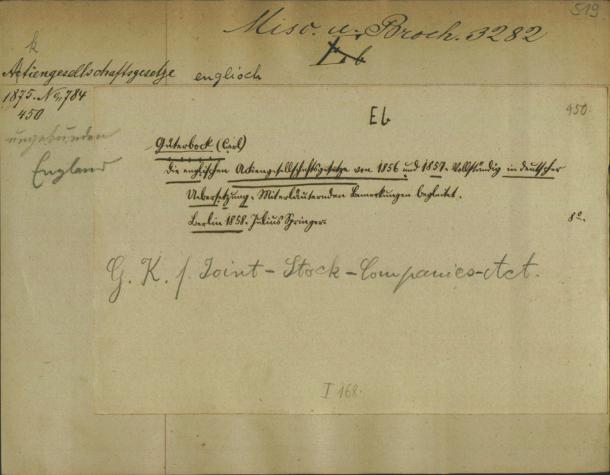 519
Misc. u. Broch. 3282
I. b
k
Actiengesellschaftsgesetze englisch
1875. No. 784
450
ungebunden
England
Eb
450
Güterbock (Carl)
Die englischen Aktiengesellschaftsgesetze von 1856 und 1857. Vollständig in deutscher
Uebersetzung. Mit erläuternden Bemerkungen begleitet.
Berlin 1858. Julius Springer.
8o.
G. K. f. Joint-Stock-Companies-Act.
I 168.